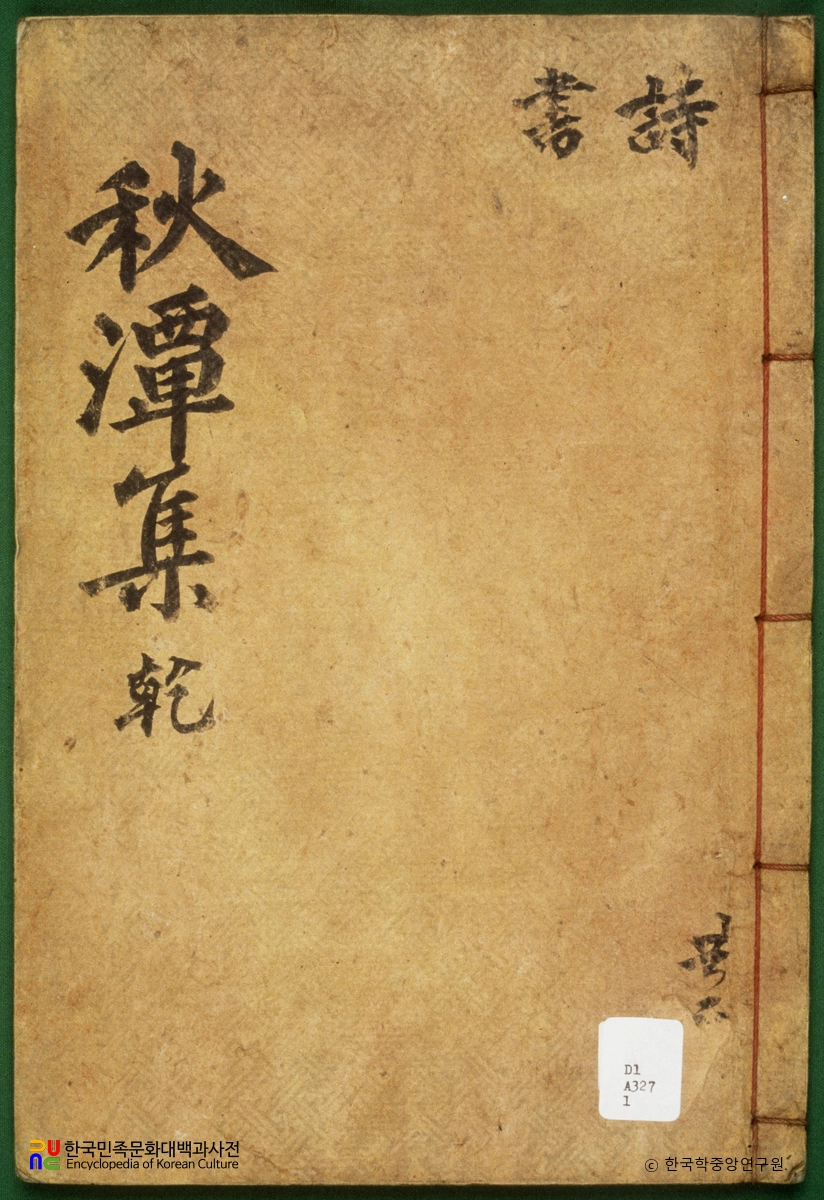 詩
書
秋潭集 乾
共二
D1
A327
1
한국민족문화대백과사전
Encyclopedia of Korean Culture
© 한국학중앙연구원